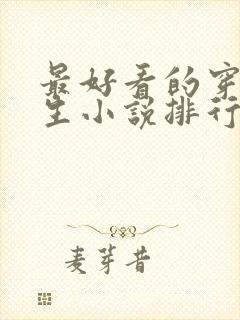 最好看的穿
生小说排行
麦芽昔